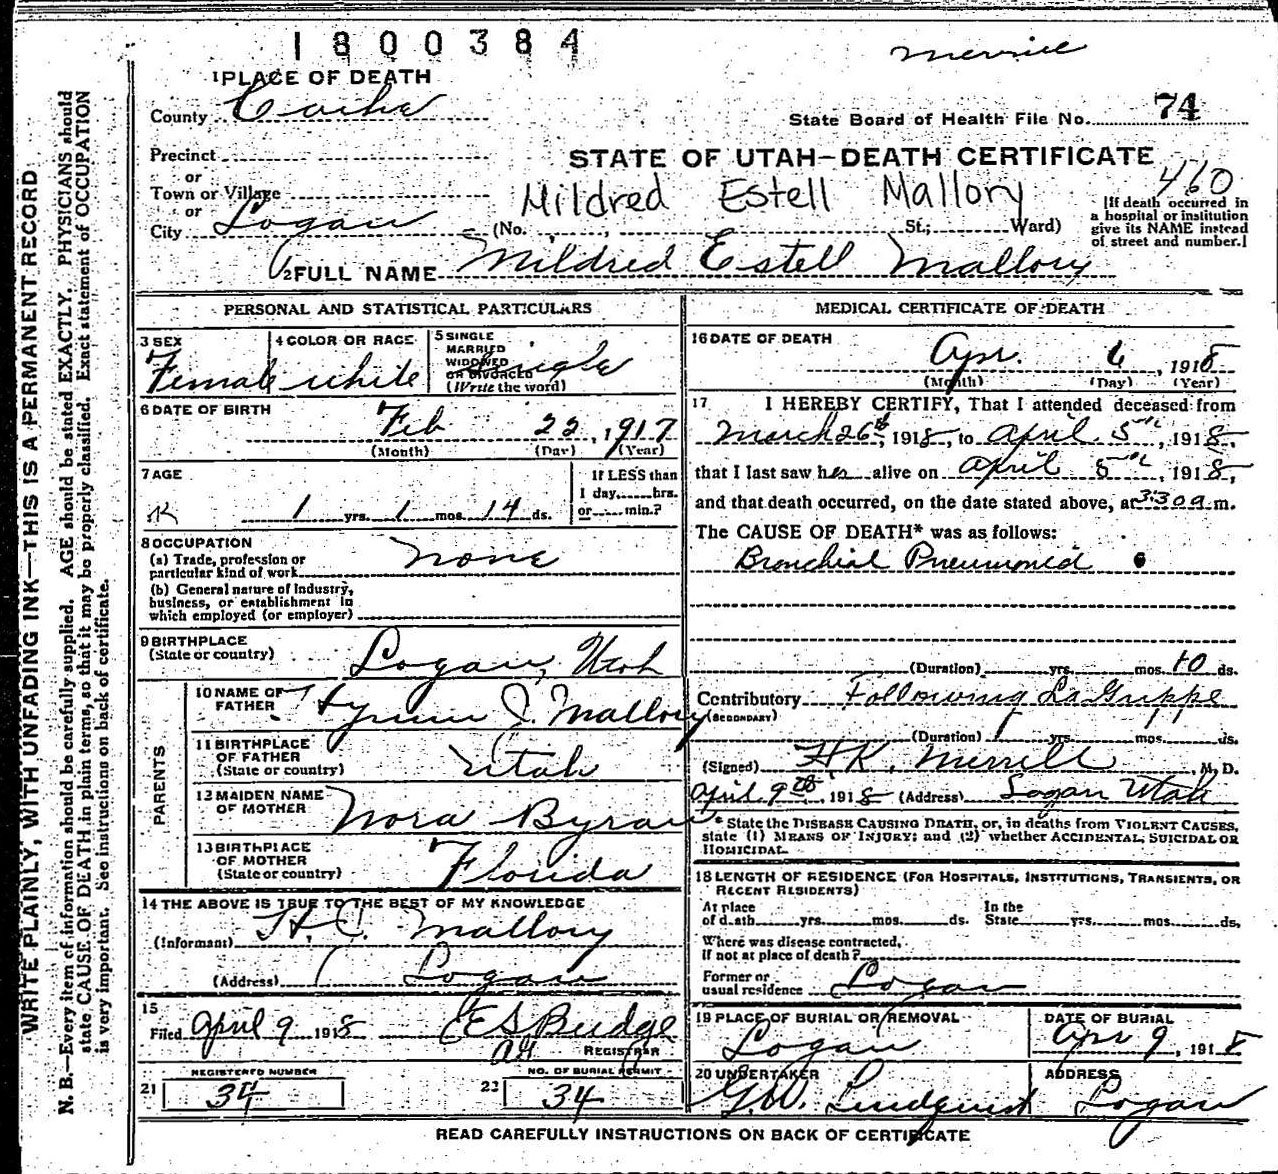 1800384
Merrill
1 PLACE OF DEATH
County Cache
State Board of Health File No. 74
Precinct
or
STATE OF UTAH-DEATH CERTIFICATE
Town or Village
Mildred Estell Mallory
460
or
City Logan (No. St.; Ward)
[If death occurred in
a hospital or institution
give its NAME instead
of street and number.]
2 FULL NAME Mildred Estell Mallory
PERSONAL AND STATISTICAL PARTICULARS
3 SEX
Female
4 COLOR OR RACE
white
5 SINGLE
MARRIED
WIDOWED
OR DIVORCED
(Write the word)
Single
6 DATE OF BIRTH
Feb 22, 1917
(Month) (Day) (Year)
7 AGE
1 yrs. 1 mos. 14 ds.
If LESS than
1 day, hrs.
or min.?
8 OCCUPATION
(a) Trade, profession or
particular kind of work none
(b) General nature of Industry,
business, or establishment in
which employed (or employer)
9 BIRTHPLACE
(State or country) Logan, Utah
PARENTS
10 NAME OF
FATHER Hyrum J. Mallory
11 BIRTHPLACE
OF FATHER
(State or country) Utah
12 MAIDEN NAME
OF MOTHER Nora Byram
13 BIRTHPLACE
OF MOTHER
(State or country) Florida
14 THE ABOVE IS TRUE TO THE BEST OF MY KNOWLEDGE
(Informant) H. C. Mallory
(Address) Logan
15
Filed April 9 1918 E S Budge
REGISTRAR
REGISTERED NUMBER
21 34
NO. OF BURIAL PERMIT
22 34
MEDICAL CERTIFICATE OF DEATH
16 DATE OF DEATH
Apr. 6, 1918
(Month) (Day) (Year)
17 I HEREBY CERTIFY, That I attended deceased from
March 26th, 1918, to April 5th, 1918,
that I last saw her alive on April 5th, 1918,
and that death occurred, on the date stated above, at 3:30 a m.
The CAUSE OF DEATH* was as follows:
Bronchial Pneumonia
(Duration) yrs. mos. 10 ds.
Contributory Following LaGrippe
(SECONDARY)
(Duration) yrs. mos. ds.
(Signed) H K. Merrill, M. D.
April 9th, 1918 (Address) Logan Utah
* State the DISEASE CAUSING DEATH, or, in deaths from VIOLENT CAUSES,
state (1) MEANS OF INJURY; and (2) whether ACCIDENTAL, SUICIDAL OR
HOMICIDAL.
18 LENGTH OF RESIDENCE (FOR HOSPITALS, INSTITUTIONS, TRANSIENTS, OR
RECENT RESIDENTS)
At place
of death yrs. mos. ds.
In the
State yrs. mos. ds.
Where was disease contracted,
if not at place of death?
Former or
usual residence Logan
19 PLACE OF BURIAL OR REMOVAL
Logan
DATE OF BURIAL
Apr 9, 1918
20 UNDERTAKER
G. W. Lindquist
ADDRESS
Logan
READ CAREFULLY INSTRUCTIONS ON BACK OF CERTIFICATE
WRITE PLAINLY, WITH UNFADING INK—THIS IS A PERMANENT RECORD
N. B.—Every item of information should be carefully supplied. AGE should be stated EXACTLY. PHYSICIANS should
state CAUSE OF DEATH in plain terms, so that it may be properly classified. Exact statement of OCCUPATION
is very important. See instructions on back of certificate.